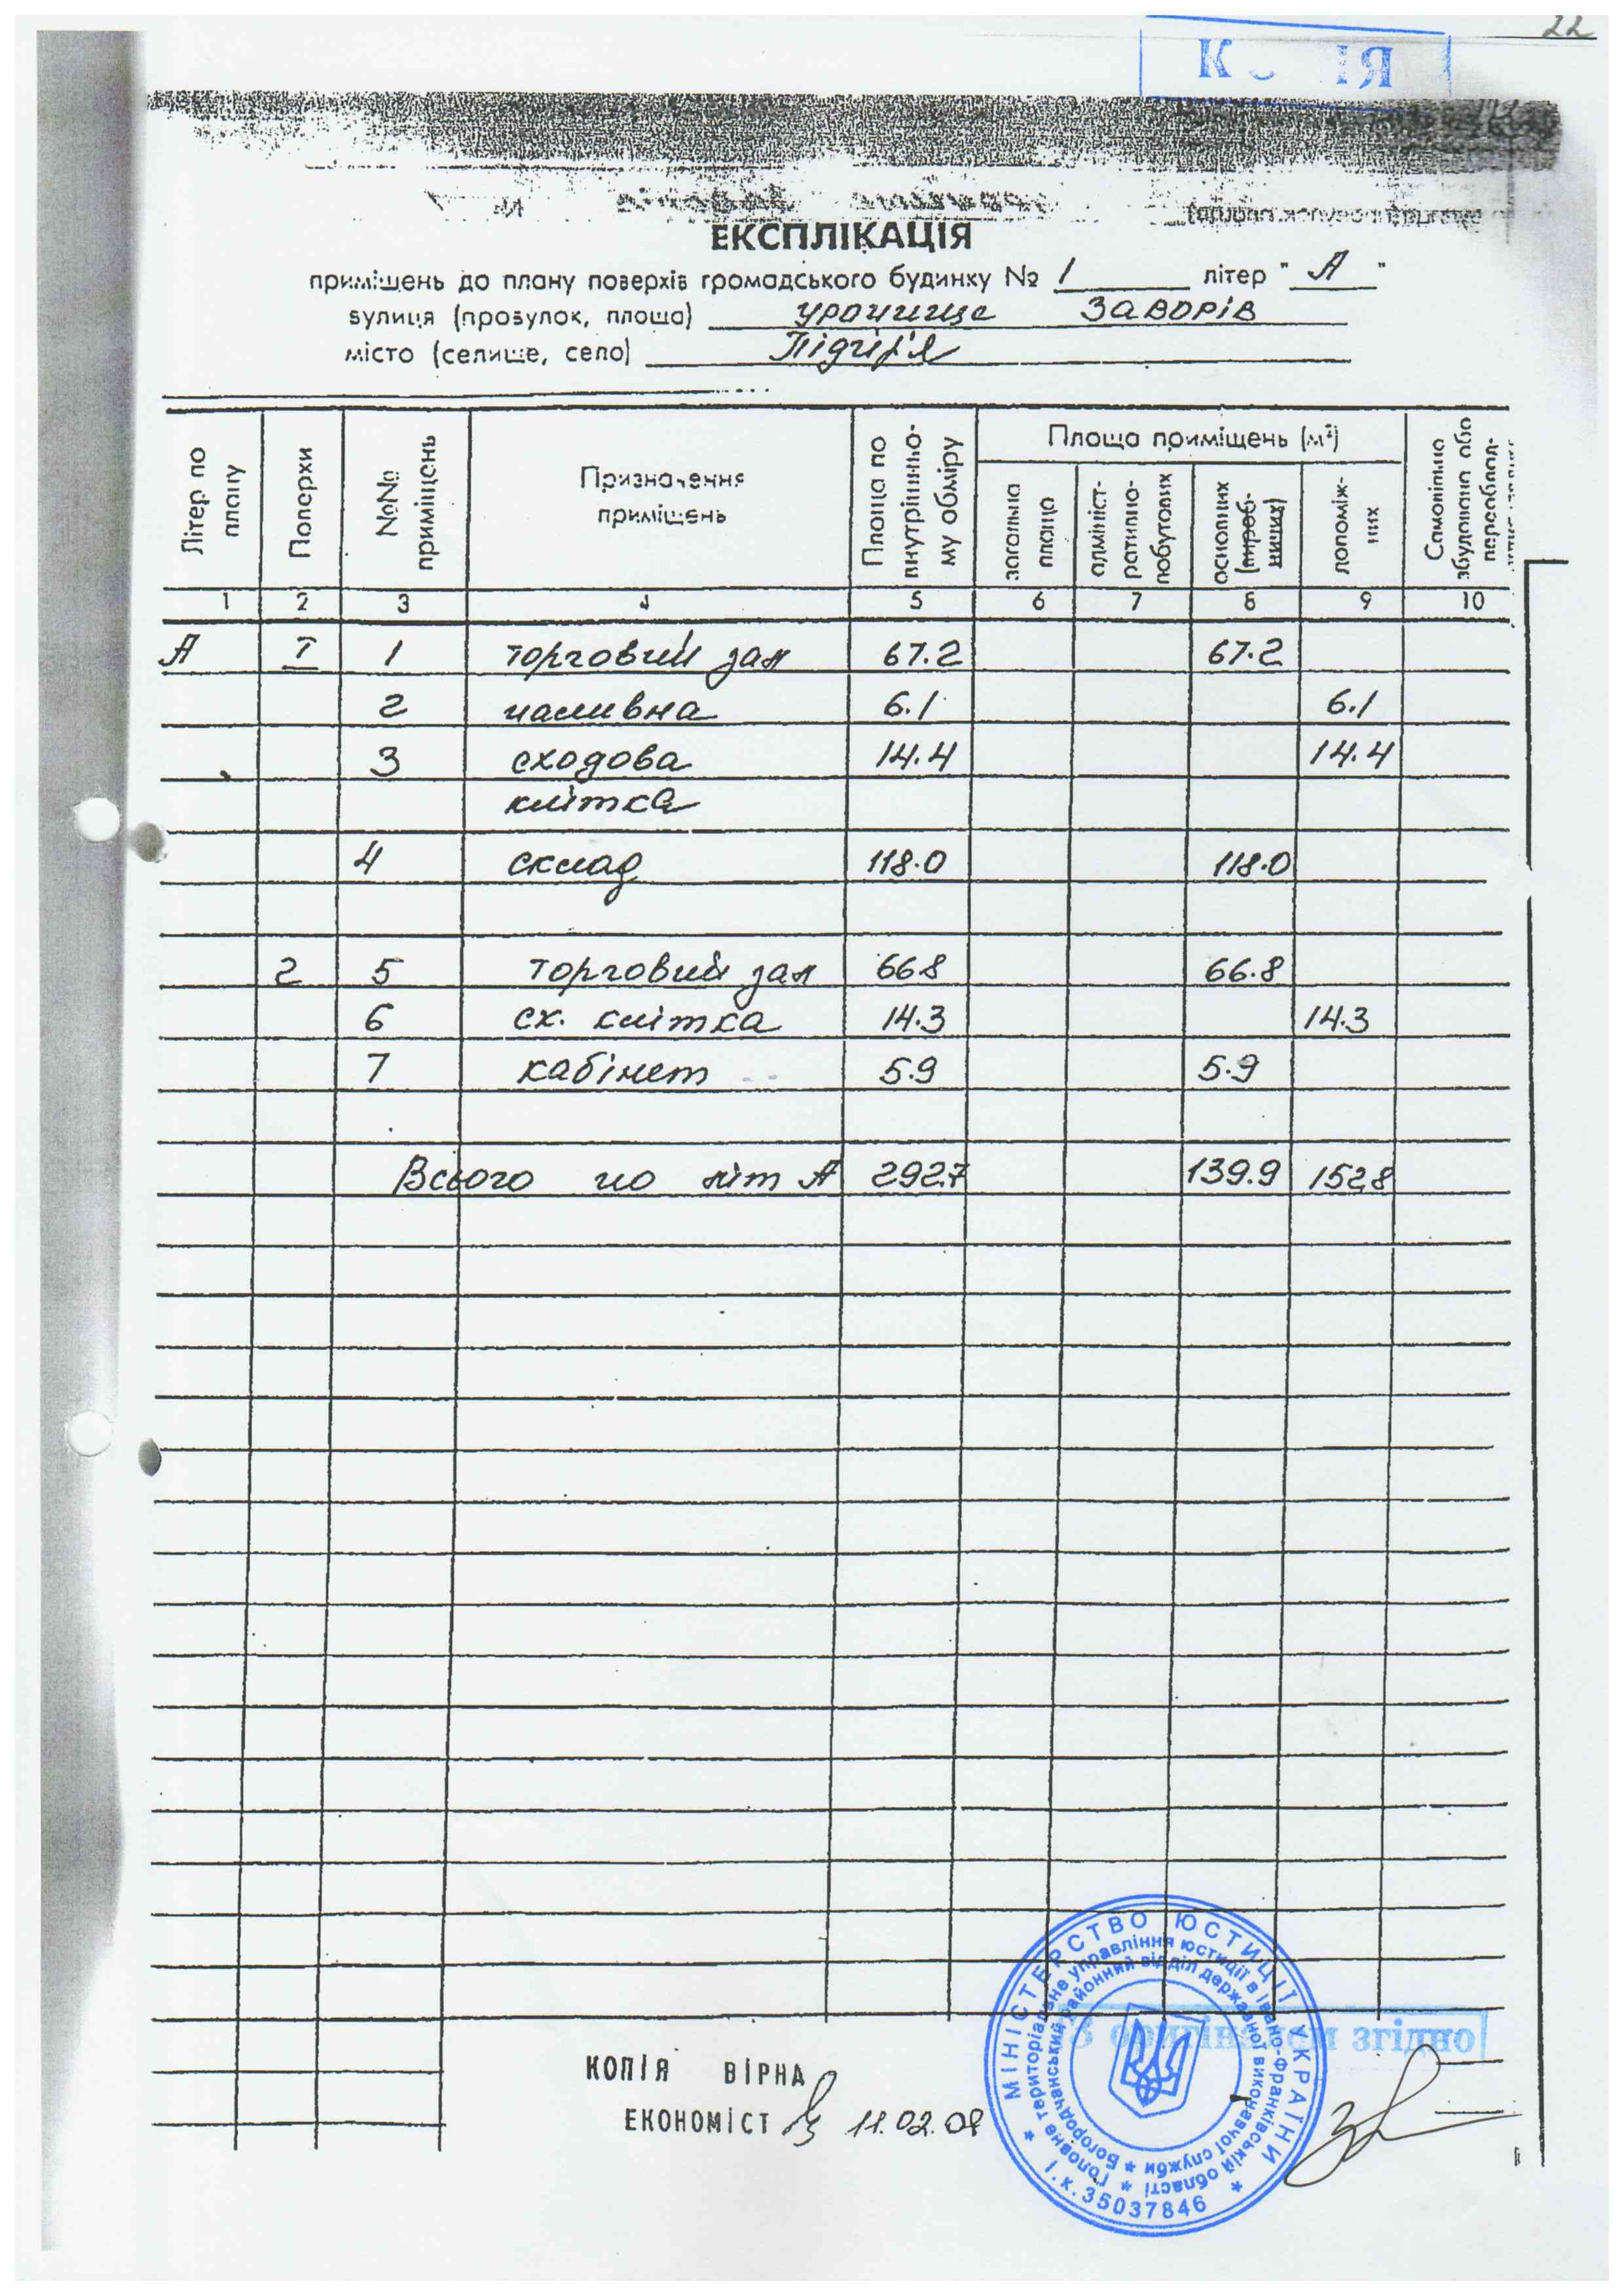 22
К ІЯ
ЕКСПЛІКАЦІЯ
приміщень до плану поверхів громадського будинку № 1 літер " А "
вулиця (провулок, площа) урочище Заворів
місто (селище, село) Підгір'я
Літер по плану
Поверхи
№№ приміщень
Призначення приміщень
Площа по внутрішньо-му обміру
Площа приміщень (м²)
загальна площа
адмініст-ративно-побутових
основних (вироб-ничих)
допоміж-них
Самовільно збудована або переоблад-
1 2 3 4 5 6 7 8 9 10
А І 1 торговий зал 67.2 67.2
2 наливна 6.1 6.1
3 сходова 14.4 14.4
клітка
4 склад 118.0 118.0
2 5 торговий зал 668 66.8
6 сх. клітка 14.3 14.3
7 кабінет 5.9 5.9
Всього по літ А 292.7 139.9 152.8
З оригіналом згідно
КОПІЯ ВІРНА
ЕКОНОМІСТ 11.02.08
МІНІСТЕРСТВО ЮСТИЦІЇ УКРАЇНИ
* І.к.35037846 *
Головне територіальне управління юстиції в Івано-Франківській області *
Богородчанський районний відділ державної виконавчої служби *